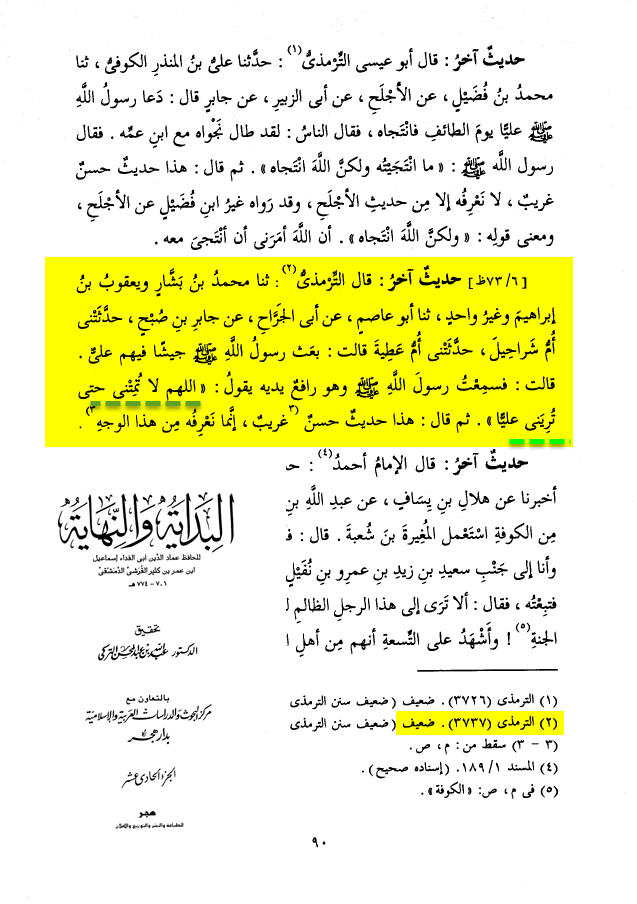 حديثٌ آخرُ : قال أبو عيسى التِّرْمذىُّ(١) : حدَّثنا علىُّ بنُ المنذرِ الكوفىُّ ، ثنا
محمدُ بنُ فُضَيْلٍ ، عن الأجْلَحِ ، عن أبى الزبيرِ ، عن جابرٍ قال : دَعا رسولُ اللَّهِ
ﷺ عليًّا يومَ الطائفِ فانْتَجاه ، فقال الناسُ : لقد طال نَجْواه مع ابنِ عمِّه . فقال
رسول اللَّه ﷺ : « ما انْتَجَيْتُه ولكنَّ اللَّهَ انْتَجاه » . ثم قال : هذا حديثٌ حسنٌ
غريبٌ ، لا نَعْرِفُه إلا مِن حديثِ الأجْلَحِ ، وقد رَواه غيرُ ابنِ فُضَيْلٍ عن الأجْلَحِ ،
ومعنى قولِه : « ولكنَّ اللَّهَ انْتَجاه » . أن اللَّهَ أمَرَنى أن أنْتَجىَ معه .
[٧٣/٦ظ] حديثٌ آخرُ : قال التِّرْمذىُّ(٢) : ثنا محمدُ بنُ بَشَّارٍ ويعقوبُ بنُ
إبراهيمَ وغيرُ واحدٍ ، ثنا أبو عاصمٍ ، عن أبى الجَرَّاحِ ، عن جابرِ بنِ صُبْحٍ ، حدَّثَتْنى
أُمُّ شَراحيلَ ، حدَّثَتْنى أُمُّ عَطِيةَ قالت : بعَث رسولُ اللَّهِ ﷺ جيشًا فيهم علىٌّ .
قالت : فسمِعْتُ رسولَ اللَّهِ ﷺ وهو رافعٌ يديه يقولُ : « اللهم لا تُمِتْنى حتى
تُرِيَنى عليًّا » . ثم قال : هذا حديثٌ حسنٌ (٣غريبٌ ، إنَّما نَعْرِفُه مِن هذا الوجهِ٣) .
حديثٌ آخرُ : قال الإمامُ أحمدُ(٤) : حـ
أخبرنا عن هلالِ بنِ يِسَافٍ ، عن عبدِ اللَّهِ بنِ
مِن الكوفةِ اسْتَعْمل المُغِيرةَ بنَ شُعبةَ . قال : فـ
وأنا إلى جَنْبِ سعيدِ بنِ زيدِ بنِ عمرِو بنِ نُفَيْلٍ
فتبِعْتُه ، فقال : ألا تَرَى إلى هذا الرجلِ الظالمِ لـ
الجنةِ(٥) ! وأَشْهَدُ على التِّسعةِ أنهم مِن أهلِ ا
البداية والنهاية
للحافظ عماد الدين أبى الفداء إسماعيل
ابن عمر بن كثير القرشى الدمشقى
٧٠١ - ٧٧٤ هـ
تحقيق
الدكتور عبد الله بن عبد المحسن التركى
بالتعاون مع
مركز البحوث والدراسات العربية والإسلامية
بدار هجر
الجزء الحادى عشر
هجر
للطباعة والنشر والتوزيع والإعلان
(١) الترمذى (٣٧٢٦). ضعيف (ضعيف سنن الترمذى
(٢) الترمذى (٣٧٣٧). ضعيف (ضعيف سنن الترمذى
(٣ - ٣) سقط من : م ، ص .
(٤) المسند ١/ ١٨٩. (إسناده صحيح).
(٥) فى م ، ص: «الكوفة».
٩٠